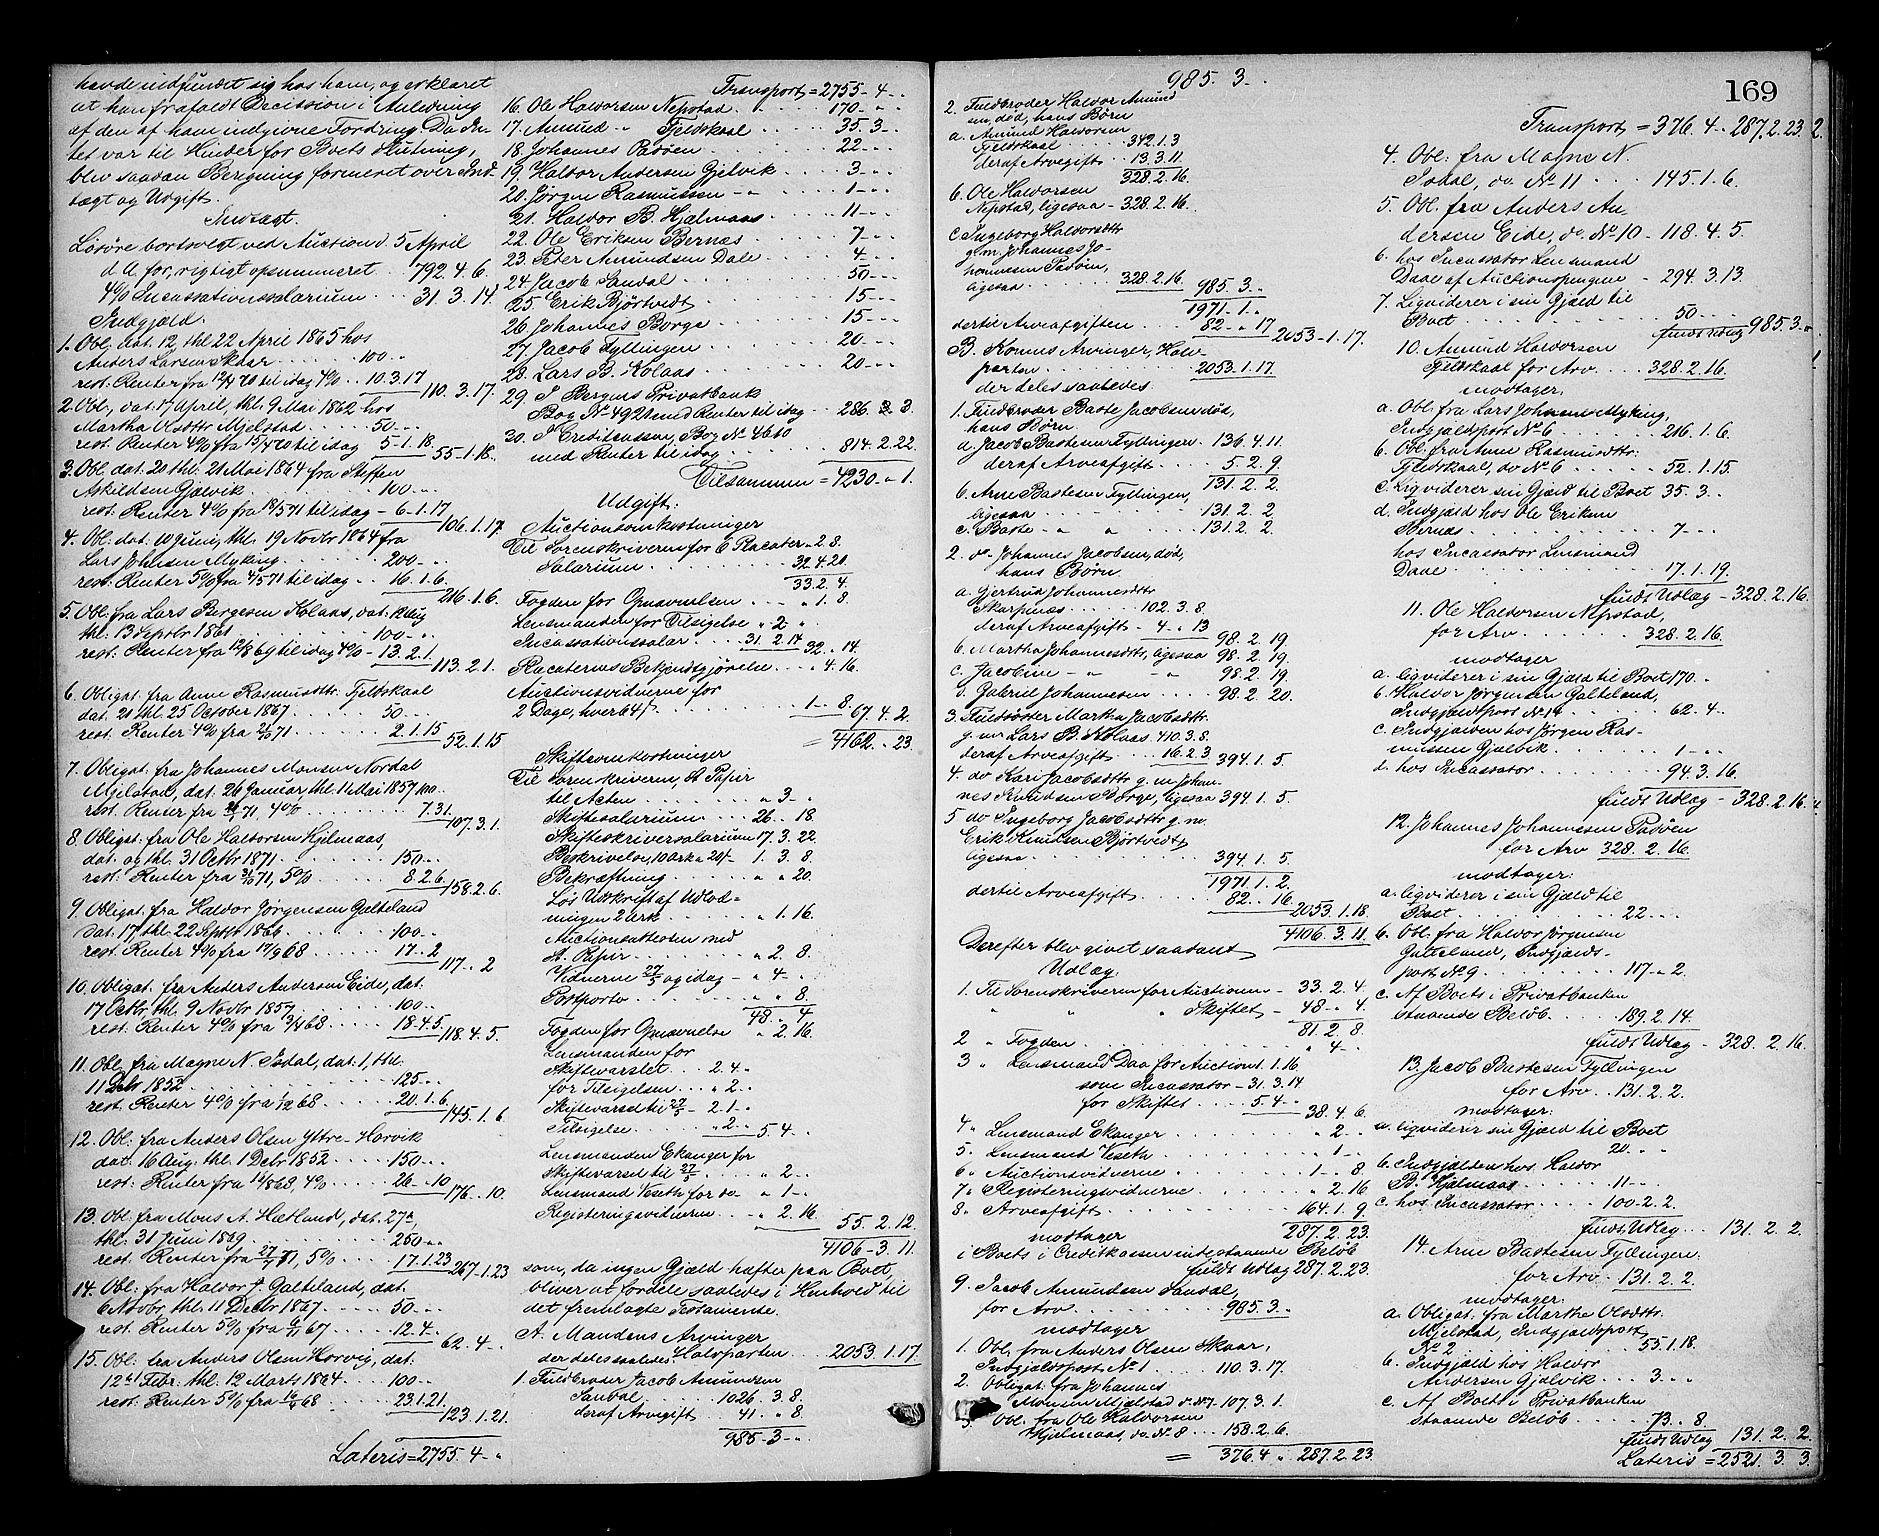 havde indfundet sig hos ham, og erklæret
at han frafaldt Decission i Anledning
af den af ham indgivne Fordring. Da In-
tet var til Hinder for Boets Slutning,
blev saadan Beregning formeret over Ind-
tægt og Udgift.
Indtægt.
Løsøre bortsolgt ved Auction d. 5 April
d. A. for, rigtigt opsummeret .. 792. 4. 6.
4% Incassationssalarium ... 31. 3. 14.
Indgjæld.
1. Obl. dat. 12, thl. 22 April 1865 hos
Anders Larsen Skaar ...... 100 - "
rest. Renter fra 12/4 70 til idag 4% .. 10. 3. 17 110. 3. 17.
2. Obl., dat. 17 April, thl. 9 Mai 1862 hos
Martha Olsdtr Mjelstad ..... 50 - "
rest. Renter 4% fra 15/4 70 til idag 5 - 1. 18. 55. 1. 18.
3. Obl. dat. 20 thl. 21 Mai 1864 fra Steffen
Askildsen Gjelvik ........ 100 - "
rest. Renter 4% fra 12/5 71 til idag - 6 - 1. 17 106. 1. 17
4. Obl. dat. 10 Juni, thl. 19 Novbr 1864 fra
Lars Johnsen Myking ...... 200 - "
rest. Renter 5% fra 4/5 71 til idag .. 16. 1. 6. 216. 1. 6.
5. Obl. fra Lars Bergesen Kolaas, dat. 12 Aug
thl. 13 Septbr 1861 ....... 100 - "
rest. Renter fra 12/8 69 til idag 4% - 13. 2. 1. 113. 2. 1.
6. Obligat. fra Anne Rasmusdtr. Fjeldskaal
dat. 21 thl. 25 October 1867 ..... 50 - "
rest. Renter 4% fra 71 ..... 2. 1. 15 52. 1. 15
7. Obligat. fra Johannes Monsen Nordal
Mjelstad, dat. 26 Januar, thl. 1 Mai 1857 100 -
rest. Renter fra 71 4% ..... 7. 3. 1. 107. 3. 1.
8. Obligat. fra Ole Haldorsen Hjelmaas,
dat. og thl. 31 Octbr 1871 ..... 150 - "
rest. Renter fra 31/10 71, 5% ..... 8. 2. 6. 158. 2. 6.
9. Obligat. fra Haldor Jørgensen Galteland
dat. 17, thl. 22 Septbr 1866 ..... 100 - "
rest. Renter 4% fra 17/9 68 ..... 17 - . 2 117. " 2
10. Obligat. fra Anders Andersen Eide, dat.
17 Octbr, thl. 9 Novbr 1857 ..... 100 - "
rest. Renter 4% fra 68 ..... 18. 4. 5. 118. 4. 5.
11. Obl. fra Magne N. Isdal, dat. 1, thl.
11 Decbr 1852 ......... 125 - "
rest. Renter 4% fra 1/12 68 ..... 20. 1. 6. 145. 1. 6
12. Obl. fra Anders Olsen Yttre - Horvik
dat. 16 Aug. thl. 1 Decbr 1852 ..... 150 - "
rest. Renter fra 68, 4% ..... 26 - . 10 176 - . 10.
13. Obl. fra Mons A. Hetland, dat. 27de,
thl. 31 Juni 1869 ....... 250 - "
rest. Renter fra 71, 5% ..... 17. 1. 23 267. 1. 23
14. Obl. fra Haldor J. Galteland, dat.
6 Novbr, thl. 11 Decbr 1867 ..... 50 - "
rest. Renter 5% fra 6/11 67 ..... 12. 4. " 62. 4. "
15. Obl. fra Anders Olsen Horvig, dat.
12te Febr. thl. 12 Marts 1864 ..... 100 - "
rest. Renter 5% fra 68 ..... 23. 1. 21. 123. 1. 21.
Lateris = 2755. 4 - "
Transport = 2755 - 4 - "
16. Ole Haldorsen Nepstad ..... 170 - "
17. Amund " Fjeldskaal ..... 35. 3 - "
18. Johannes Padøen ..... 22 - "
19. Haldor Andersen Gjelvik ..... 3 - "
20. Jørgen Rasmussen - " ..... 1 - "
21. Haldor B. Hjelmaas ..... 11 - "
22. Ole Eriksen Bernæs ..... 7 - "
23. Peter Amundsen Dale ..... 4 - "
24. Jacob Sandal ..... 50 - "
25. Erik Bjørtvedt ..... 15 - "
26. Johannes Borge ..... 15 - "
27. Jacob Fyllingen ..... 20 - "
28. Lars B. Kolaas ..... 20 - "
29. I Bergens Privatbank
Bog No 4921 med Renter til idag .. 286. 3. 3.
30. I Creditcassen, Bog No 4660
med Renter til idag ..... 814. 2. 22.
Tilsammen = 4230. " 1.
Udgift:
Auctionsomkostninger
Til Sorenskriveren for 6 Placater " 2. 8.
Salarium ....... 32. 4. 20.
33. 2. 4.
Fogden for Opnævnelsen ... " 1. 8.
Lensmanden for Tilsigelse " 2 "
Incassationssalar .... 31. 2. 14 32. " 14.
Placaternes Bekjendtgjørelse ... " 4. 16.
Auctionsvidnerne for
2 Dage, hver 64 ß ...... 1 - " 8. 67. 4. 2.
= 4162. " 23.
Skifteomkostninger
Til Sorenskriveren, St. Papir
til Acten ........ " 3 - "
Skiftesalarium ..... 26 - " 18.
Skifteskriversalarium 17. 3. 22.
Beskrivelse, 10 Ark a 20 ß - 1. 3. 8.
Bekræftning ...... " " 20.
Løs Udskrift af Udlod-
ningen 2 Ark ..... " 1. 16.
Auctionsattesten med
St. Papir ........ " 2. 8.
Vidnerne 27/5 og idag - " 4 - "
Postporto ........ " " 8.
48 " 4
Fogden for Opnævnelse .. " 2. 16.
Lensmanden for
Skiftevarslet ... 2. 4 "
for Tilsigelsen ... " 2 "
Skiftevarsel til 27/5 - 2. 1 - "
Tilsigelse ..... " 2 " 5 4 - "
Lensmanden Ekanger for
Skiftevarsel til 27/5 .... " 2 - "
Lensmand Veseth for do " 1 - "
Registeringsvidnerne .... " 2. 16 55. 2. 12.
4106 - 3. 11.
som, da ingen Gjæld hæfter paa Boet,
bliver at fordele saaledes i Henhold til
det fremlagte Testamente.
A. Mandens Arvinger
der deles saaledes. Halvparten ... 2053. 1. 17.
1. Fuldbroder Jacob Amundsen
Sandal ...... 1026. 3. 8.
deraf Arvegift .. 41. " 8
985 - 3 - "
985. 3. "
2. Fuldbroder Haldor Amund
sen, død, hans Børn
a. Amund Haldorsen
Fjeldskaal ..... 342. 1. 3
deraf Arvegift .. 13. 3. 11.
328. 2. 16.
b. Ole Haldorsen
Nepstad, ligesaa - 328. 2. 16.
c. Ingeborg Haldorsdtr
g. m. Johannes Jo-
hannesen Padøen,
ligesaa ...... 328. 2. 16. 985. 3. "
1971 - 1 - "
dertil Arveafgiften ..... 82 - " 17 2053 - 1. 17.
B. Konens Arvinger, Halv-
parten ........ 2053. 1. 17.
der deles saaledes.
1. Fuldbroder Baste Jacobsen, død,
hans Børn
a. Jacob Bastesen Fyllingen . 136. 4. 11.
deraf Arveafgift ... 5. 2. 9.
131. 2. 2.
b. Arne Bastesen Fyllingen,
ligesaa ........ 131. 2. 2
c. Baste " " 131. 2. 2
2. do Johannes Jacobsen, død,
hans Børn.
a. Gjertrud Johannesdtr
Skarpenes ..... 102. 3. 8.
deraf Arveafgift - 4 - " 13 98. 2. 19.
b. Martha Johannesdtr, ligesaa 98. 2. 19.
c. Jacobine - " - " 98. 2. 19.
d. Gabriel Johannesen .... 98. 2. 20.
3. Fuldsøster Martha Jacobsdtr.
g. m. Lars B. Kolaas 410. 3. 8.
deraf Arveafgift ... 16. 2. 3. 394. 1. 5
4. do Kari Jacobsdtr g. m. Johan-
nes Knudsen Borge, ligesaa 394. 1. 5.
5 do Ingeborg Jacobsdtr g. m.
Erik Knudsen Bjørtvedt,
ligesaa ........ 394. 1. 5.
1971. 1. 2.
dertil Arveafgift ..... 82. " 16. 2053. 1. 18.
4106. 3. 11.
Derefter blev givet saadant
Udlæg.
1. Til Sorenskriveren for Auctionen - 33. 2. 4.
" " " Skiftet - 48 - " 4.
81. 2. 8.
2 " Fogden ......... " 4 - "
3 " Lensmand Daa for Auctionen 1. 16
som Incassator - 31. 3. 14
for Skiftet ..... 5. 4 - " 38. 4. 6.
4 " Lensmand Ekanger ..... " 2 - "
5. Lensmand Veseth ..... " 1 - "
6 " Auctionsvidnerne ..... 1 - " 8
7 " Registeringsvidnerne ..... " 2. 16
8 " Arveafgift ....... 164. 1. 9
modtager 287. 2. 23.
i Boets i Creditkassen indestaaende Beløb
fulds Udlæg 287. 2. 23.
9. Jacob Amundsen Sandal,
for Arv ........ 985. 3. "
modtager
1. Obl. fra Anders Olsen Skaar,
Indgjældspost No 1 .... 110. 3. 17.
2. Obligat. fra Johannes
Monsen Mjelstad do No 7. 107. 3. 1.
3. Obl. fra Ole Haldorsen
Hjelmaas, do No 8 ... 158. 2. 6.
= 376. 4 " 287. 2. 23.
169
Transport = 376. 4 " 287. 2. 23. 2.
4. Obl. fra Magne N.
Isdal, do No 11 ... 145. 1. 6.
5. Obl. fra Anders An-
dersen Eide, do. No 10 - 118. 4. 5.
6. hos Incassator Lensmand
Daae af Auctionspengene - 294. 3. 13.
7. Ligviderer i sin Gjæld til
Boet ......... 50 - "
fulds Udlæg 985. 3. "
10. Amund Haldorsen
Fjeldskaal for Arv .... 328. 2. 16.
modtager.
a. Obl. fra Lars Johnsen Myking,
Indgjældspost No 6 ..... 216. 1. 6.
b. Obl. fra Anne Rasmusdtr.
Fjeldskaal, do No 6 .... 52. 1. 15.
c. Ligviderer sin Gjæld til Boet 35. 3 "
d. Indgjæld hos Ole Eriksen
Bernæs ........ 7 - "
hos Incassator Lensmand
Daae ......... 17. 1. 19
fulds Udlæg - 328. 2. 16.
11. Ole Haldorsen Nepstad,
for Arv ....... 328. 2. 16.
modtager
a. ligviderer i sin Gjæld til Boet 170. "
b. Haldor Jørgensen Galteland,
Indgjældspost No 14 ..... 62. 4 "
c. Indgjælden hos Jørgen Ras-
mussen Gjelvik ..... 1 - "
d. hos Incassator ..... 94. 3. 16.
fulds Udlæg - 328. 2. 16.
12. Johannes Johannesen Padøen
for Arv 328. 2. 16.
modtager.
a. ligviderer i sin Gjæld til
Boet ........ 22 - "
b. Obl. fra Haldor Jørgensen
Galteland, Indgjælds-
post No 9 ....... 117 - " 2.
c. Af Boets i Privatbanken
staaende Beløb ..... 189. 2. 14.
fulds Udlæg - 328. 2. 16.
13. Jacob Bastesen Fyllingen
for Arv .. 131. 2. 2.
modtager.
a. ligviderer sin Gjæld til Boet
20. " "
b. Indgjælden hos Haldor
B. Hjelmaas ...... 11 - "
c. hos Incassator ... 100. 2. 2.
fulds Udlæg ... 131. 2. 2.
14. Arne Bastesen Fyllingen.
for Arv . 131. 2. 2.
modtager.
a. Obligat. fra Martha Olsdtr.
Mjelstad, Indgjældspost
No 2 ....... 55. 1. 18.
b. Indgjæld hos Haldor
Andersen Gjelvik ... 3 - "
c. Af Boets i Privatbanken
staaende Beløb ..... 73. " 8.
fulds Udlæg 131. 2. 2.
Lateris = 2521. 3. 3.